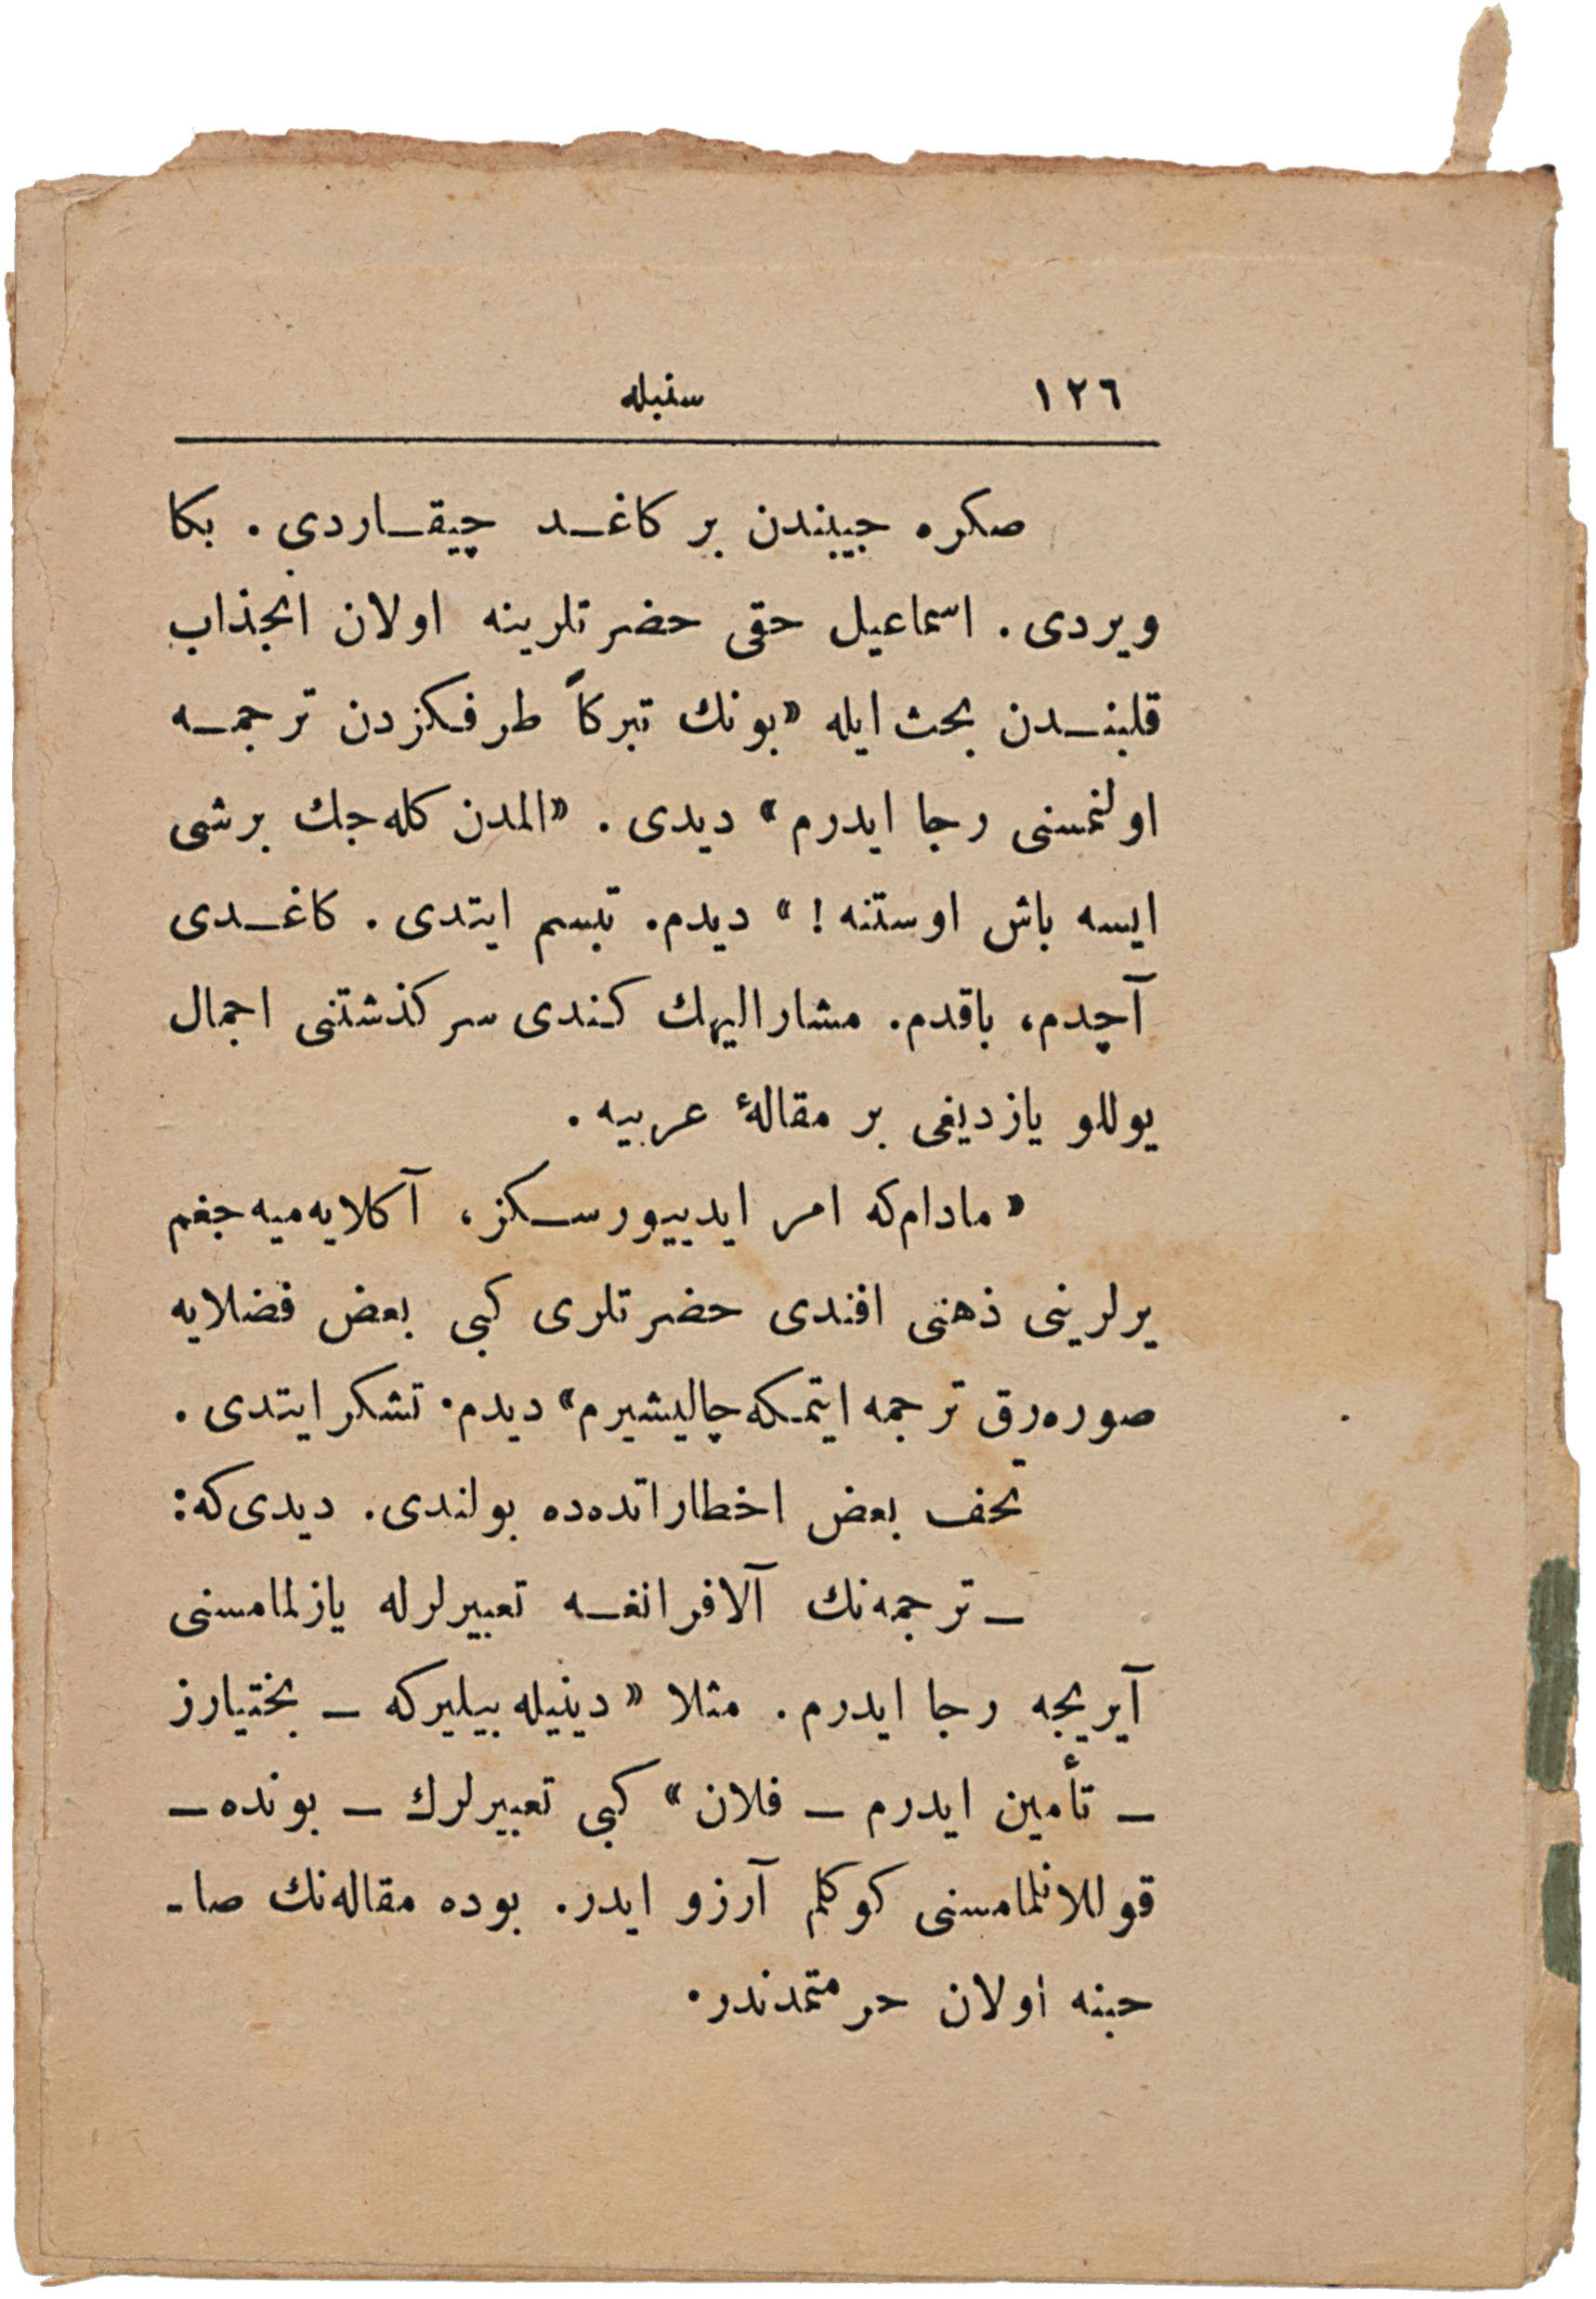 ١٢٦ سنبله
صكره جيبندن بر كاغد چيقاردى . بكا
ويردى . اسماعيل حقى حضرتلرينه اولان انجذاب
قلبندن بحث ايله «بونك تبركاً طرفكزدن ترجمه
اولنمسنى رجا ايدرم» ديدى . «المدن كله‌جك برشى
ايسه باش اوستنه !» ديدم. تبسم ايتدى . كاغدى
آچدم، باقدم. مشاراليهك كندى سركذشتنى اجمال
يوللو يازديغى بر مقالۀ عربيه .
«مادام‌كه امر ايدييورسكز، آكلايه‌ميه‌جغم
يرلرينى ذهنى افندى حضرتلرى كبى بعض فضلايه
صوره‌رق ترجمه ايتمكه چاليشيرم» ديدم. تشكر ايتدى .
تحف بعض اخطاراتده‌ده بولندى. ديدى‌كه:
ـ ترجمه‌نك آلافرانغه تعبيرلرله يازلمامسنى
آيريجه رجا ايدرم . مثلا «دينيله‌بيليركه ـ بختيارز
ـ تأمين ايدرم ـ فلان» كبى تعبيرلرك ـ بونده ـ
قوللانلمامسنى كوكلم آرزو ايدر. بوده مقاله‌نك صا-
حبنه اولان حرمتمدندر.